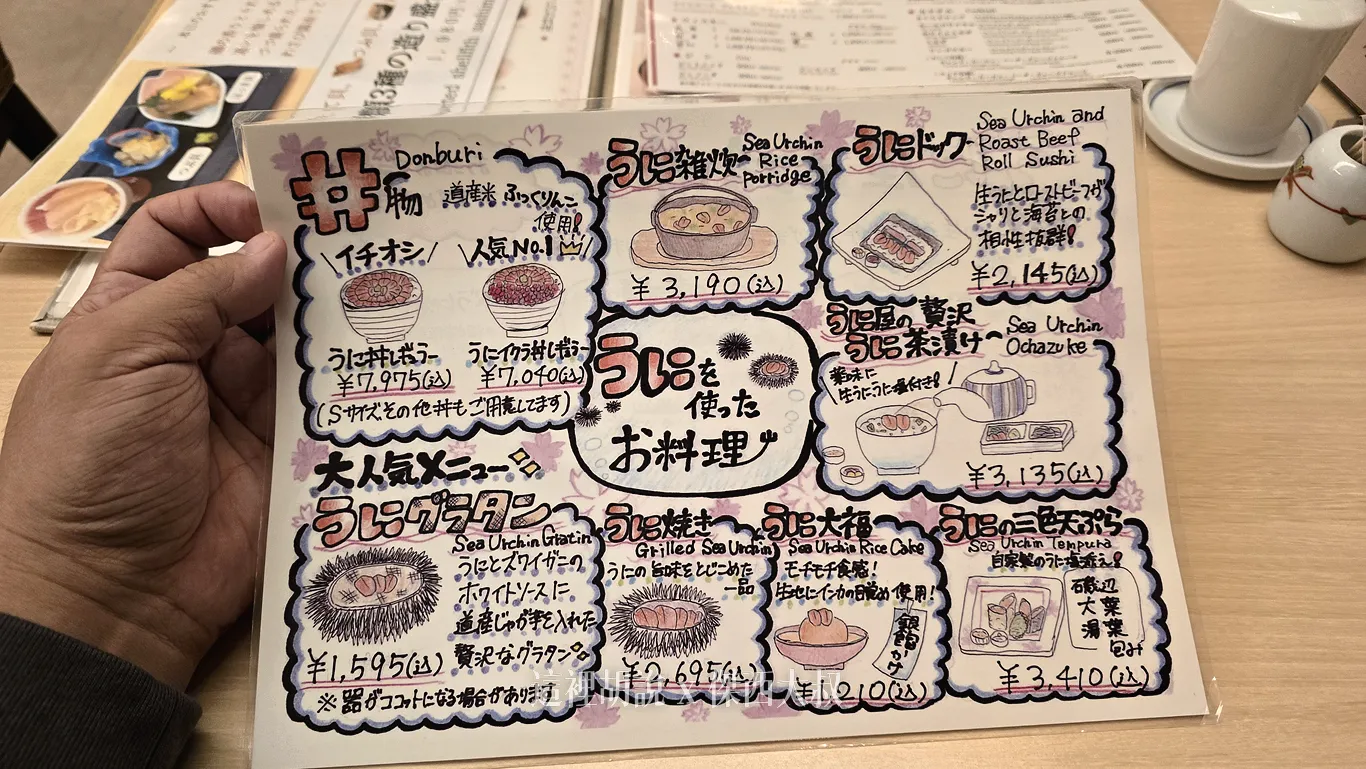 丼物
Donburi
道産米 ふっくりんこ
使用!
\イチオシ/
\人気No.1/
うに丼レギュラー
¥7,975(込)
うにイクラ丼レギュラー
¥7,040(込)
(Sサイズその他丼もご用意してます)
うに雑炊
Sea Urchin
Rice
Porridge
¥3,190(込)
うにドック
Sea Urchin and
Roast Beef
Roll Sushi
生うにとローストビーフが
シャリと海苔との
相性抜群!
¥2,145(込)
うにを
使った
お料理
うに屋の贅沢
うに茶漬け
Sea Urchin
Ochazuke
薬味に
生うにうに塩付き!
¥3,135(込)
大人気メニュー
うにグラタン
Sea Urchin Gratin
うにとズワイガニの
ホワイトソースに
道産じゃが芋を入れた
贅沢なグラタン
¥1,595(込)
※器がココットになる場合があります
うに焼き
Grilled Sea Urchin
うにの旨味をとじこめた
一品
¥2,695(込)
うに大福
Sea Urchin Rice Cake
モチモチ食感!
生地にインカの目覚め使用!
銀餡かけ
210(込)
うにの三色天ぷら
Sea Urchin Tempura
自家製のうに塩添え!
磯辺
大葉
湯葉
包み
¥3,410(込)
這裡胡說 x 陝西大叔
3種の造り盛